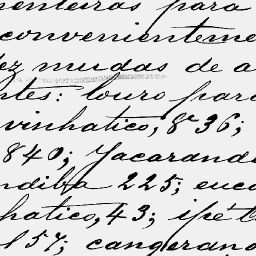 menteiras para
convenienteme
ez mudas de a
ntes: louro pard
vinhatico, 8 e 36;
840; Jacarandá
ndiba 225; euca
hatico, 43; ipê t
157; cangerana